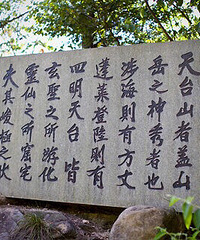 天台山者蓋山
岳之神秀者也
涉海則有方丈
蓬萊登陸則有
四明天台皆
玄聖之所游化
靈仙之所窟宅
夫其峻極之狀